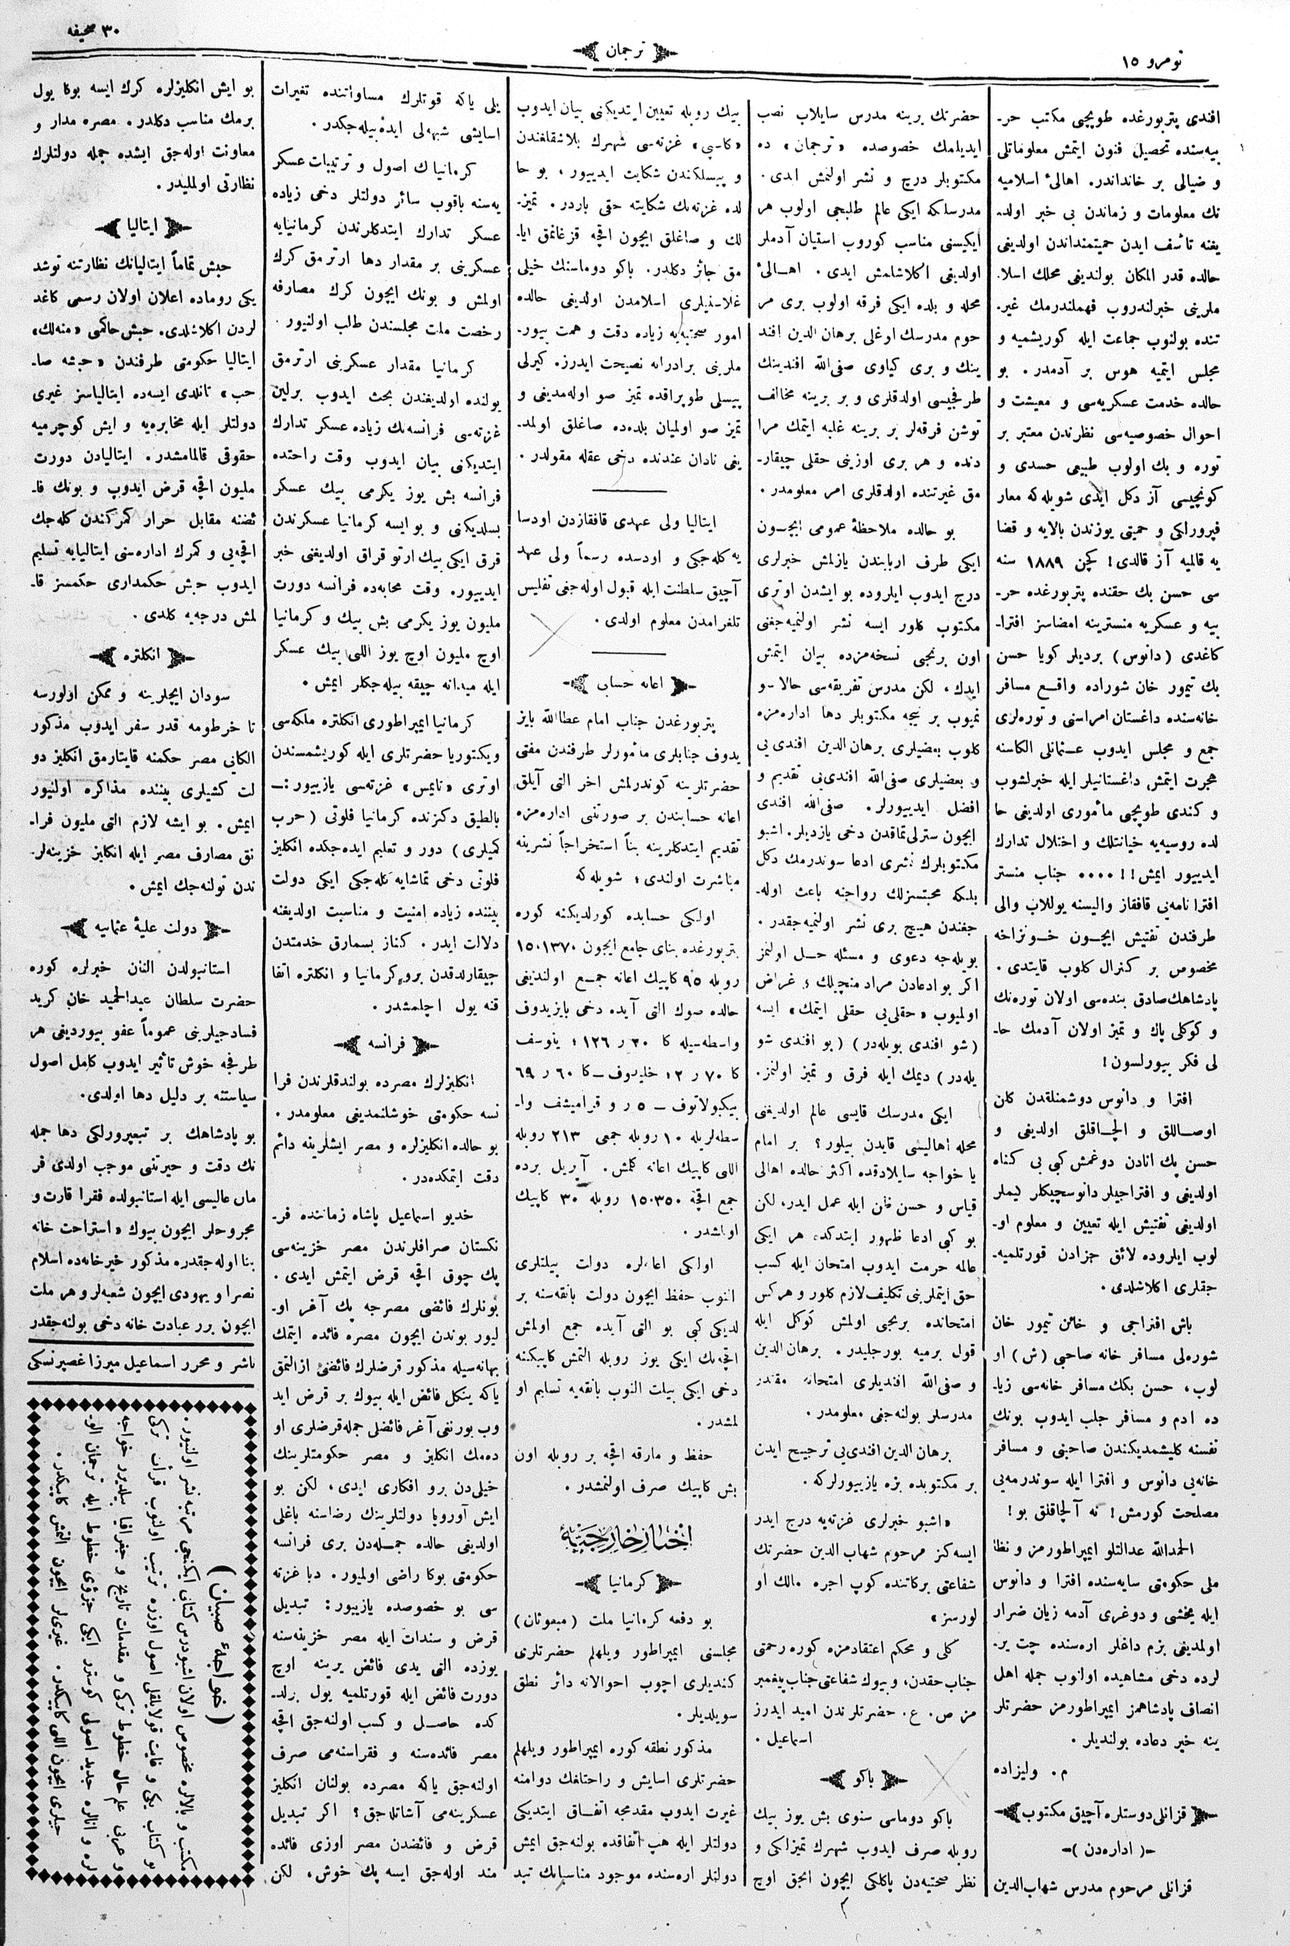 نومرو ١٥
ترجمان
٣٠ صحیفه
افندی پتربورغده طوپچی مکتب حر-
بیه‌سنده تحصیل فنون ایتمش معلوماتلی
و ضیالی بر خانداندر. اهالیٔ اسلامیه
نك معلومات و زماندن بی خبر اولد-
یغنه تأسف ایدن حمیتمنداندن اولدیغی
حالده قدر المکان بولندیغی محلك اسلا-
ملرینی خبرلندروب فهملندرمك غیر-
تنده بولنوب جماعت ایله کوریشمیه و
مجلس ایتمیه هوس بر آدمدر. بو
حالده خدمت عسکریه‌سی و معیشت و
احوال خصوصیه‌سی نظرندن معتبر بر
توره و بك اولوب طبیعی حسدی و
کونچیسی آز دکل ایدی شویله‌که معار
فپرورلکی و حمیتی یوزندن بالایه و قضا
یه قالمیه آز قالدی! کچن ١٨٨٩ سنه
سی حسن بك حقنده پتربورغده حر-
بیه و عسکریه منسترینه امضاسز افترا-
کاغدی (دانوس) بردیلر کویا حسن
بك تیمور خان شوراده واقـع مسافر
خانه‌سنده داغستان امراسنی و توره‌لری
جمع و مجلس ایدوب عـثمانلی الکاسنه
هجرت ایتمش داغستانیلر ایله خبرلشوب
و کندی طوپچی مأموری اولدیغی حا
لده روسیه‌یه خیانتلك و اختلال تدارك
ایدییور ایمش!!.... جناب منستر
افترا نامه‌یی قافقاز والیسنه یوللاب والی
طرفندن تفتیش ایچـون خـونزاخه
مخصوص بر کنرال کلوب قایتدی.
پادشاهك صادق بنده‌سی اولان توره‌نك
و کوکلی پاك و تمیز اولان آدمك حا-
لی فکر بیورلسون!
افترا و دانوس دوشمنلقدن کلن
اوصـاللق و الچـاقلق اولدیغی و
حسن بك اناندن دوغمش کبی بی کناه
اولدیغی و افتراجیلر دانوسچیکلر کیملر
اولدیغی تفتیش ایله تعیین و معلوم او-
لوب ایلروده لائق جزادن قورتلمیه-
جقلری اکلاشلدی.
باش افتراجی و خائن تیمور خان
شوره‌لی مسافر خانه صاحبی (ش) او
لوب، حسن بکك مسافر خانه‌سی زیا-
ده ادم و مسافر جلب ایدوب بونك
نفسنه کلیشمدیکندن صاحبنی و مسافر
خانه‌یی دانوس و افترا ایله سوندرمه‌یی
مصلحت کورمش! نه آلچاقلق بو!
الحمدالله عدالتلو ایمپراطورمز و نظا
ملی حکومتی سایه‌سنده افترا و دانوس
ایله یخشی و دوغری آدمه زیان ضرار
اولمدیغی بزم داغلر اره‌سنده چت یر-
لرده دخی مشاهیده اولنوب جمله اهل
انصاف پادشاهمز ایمپراطورمز حضرتلر
ینه خیر دعاده بولندیلر.
م. ولیزاده
قزانلی دوستلره آچیق مکتوب
-(اداره‌دن)-
قزانلی مرحوم مدرس شهاب‌الدین
حضرتك یرینه مدرس سایلاب نصب
ایدیلمك خصوصده «ترجمان» ده
مکتوبلر درج و نشر اولنمش ایدی.
مدرسلکه ایکی عالم طلبجی اولوب هر
ایکیسنی مناسب کوروب استیان آدملر
اولدیغی اکلاشلمش ایدی. اهـالیٔ
محله و بلده ایکی فرقه اولوب بری مر
حوم مدرسك اوغلی برهان الدین افند
ینك و بری کیاوی صفی‌الله افندینك
طرفجیسی اولدقلری و بر برینه مخالف
توشن فرقه‌لر بر برینه غلبه ایتمك مرا
دنده و هر بری اوزینی حقلی چیقار-
مق غیرتنده اولدقلری امر معلومدر.
بو حالده ملاحظهٔ عمومی ایچـون
ایکی طرف اربابندن یازلمش خبرلری
درج ایدوب ایلروده بو ایشدن اوتری
مکتوب کلور ایسه نشر اولنمیه‌جغنی
اون برنجی نسخه‌مزده بیان ایتمش
ایدك، لکن مدرس تفریقه‌سی حالا-و
نمیوب بر نیجه مکتوبلر دها اداره‌مزه
کلوب بعضیلری برهان الدین افندی‌یی
و بعضیلری صفی‌الله افندی‌یی تقدیم و
افضل ایدییورلر. صفی‌الله افندی
ایچون سترلی‌تماقدن دخی یازدیلر. اشبو
مکتوبلرك نشری ادعا سوندرمك دکل
بلکه محبتسزلك رواجنه باعث اوله-
جغندن هیـچ بری نشر اولنمیه‌جقدر.
بویله‌جه دعوی و مسئله حـل اولنمز
اکر بو ادعادن مراد منچیلك و غراض
اولمیوب «حقلی‌یی حقلی ایتمك» ایسه
(شو افندی بویله‌در) (بو افندی شو
یله‌در) دیمك ایله فرق و تمیز اولنمز.
ایکی مدرسك قایسی عالم اولدیغنی
محله اهالیسی قایدن بیلور؟ بر امام
یا خواجه سایلادقده اکثر حالده اهالی
قیاس و حسن ظن ایله عمل ایدر، لکن
بو کبی ادعا ظهور ایتدکده، هر ایکی
عالمه حرمت ایدوب امتحان ایله کسب
حق ایتملرینی تکلیف لازم کلور و هرکس
امتحانده برنجی اولمش کوکل ایله
قول برمیه بورجلیدر. برهان الدین
و صفی‌الله افندیلری امتحانه مقتدر
مدرسلر بولنه‌جغی معلومدر.
برهان الدین افندی‌یی ترجییح ایدن
بر مکتوبده بزه یازییورلرکه.
«اشبو خبرلری غزته‌یه درج ایدر
ایسه‌کز مرحوم شهاب الدین حضرتك
شفاعتی برکاتنده کوپ اجره مالك او
لورسز»
کلی و محکم اعتقادمزه کوره رحمتی
جناب حقدن، و بیوك شفاعتی جناب پیغمبر
مز ص. ع. حضرتلرندن امید ایدرز
اسماعیل.
باکو
باکو دوماسی سنوی بش یوز بیك
روبله صرف ایدوب شهرك تمیزلکی و
نظر صحتیه‌دن پاکلکی ایچون انجق اوچ
بیك روبله تعیین ایتدیکنی بیان ایدوب
«کاسپی» غزته‌سی شهرك بلاشقلغندن
و پیسلکندن شکایت ایدییور، بو حا
لده غزته‌نك شکایته حقی باردر. تمیز-
لك و صاغلق ایچون اقچه قزغانمق ایا-
مق جائز دکلدر. باکو دوماسنك خیلی
غلاسنیلری اسلامدن اولدیغی حالده
امور صحتیه‌یه زیاده دقت و همت بیور-
ملرینی برادرانه نصیحت ایدرز. کیرلی
پیسلی طوپراقده تمیز صو اوله‌مدیغی و
تمیز صو اولمیان بلده‌ده صاغلق اولمد-
یغی نادان عندنده دخی عقله مقولدر.
ایتالیا ولی عهدی قافقازدن اودسا
یه کله‌جکی و اودسده رسماً ولی عهد
آچیق سلطنت ایله قبول اوله‌جغی تفلیس
تلغرامدن معلوم اولدی.
اعانه حسابی
پتربورغدن جناب امام عطاالله بایز
یدوف جنابلری مأمورلر طرفندن مفتی
حضرتلرینه کوندرلمش اخر التی آیلق
اعانه حسابندن بر صورتنی اداره‌مزه
تقدیم ایتدکلرینه بنأ استخراجاً نشرینه
مباشرت اولندی، شویله‌که
اولکی حسابده کورلدیکنه کوره
پتربورغده بنای جامع ایچون ١٥٠١٣٧٠
روبله ٩٥ کاپیك اعانه جمـع اولندیغی
حالده صوك التی آیده دخی بایزیدوف
واسطه‌سیله کا ٢٠ ر ١٢٦؛ ینوسف
کا ٧٠ ر ١٢ خلیـوف-کا ٦٠ ر ٦٩
بیکبولاتوف- ٥ ر و قرامیشف وا-
سطه‌لریله ١٠ روبله جمعی ٢١٣ روبله
اللی کاپیك اعانه کلمش. آپریل برده
جمع اقچهٔ ١٥٠٣٥٠ روبله ٣٠ کاپیك
اولشدر.
اولکی اعانه‌لره دولت بیلتلری
النوب حفظ ایچون دولت بانقه‌سنه بر
لدیکی کبی بو التی آیده جمع اولمش
اقچه‌نك ایکی یوز روبله التمش کاپیکنه
دخی ایکی بیلت النوب بانقه‌یه تسلیم او
لمشدر.
حفظ و مارقه اقچه بر روبله اون
بش کاپیك صرف اولنمشدر.
اخبار خارجیه
کرمانیا
بو دفعه کرمانیا ملت (مبعوثان)
مجلسنی ایمپراطور ویلهلم حضرتلری
کندیلری اچوب احوالانه دائر نطق
سویلدیلر.
مذکور نطقه کوره ایمپراطور ویلهلم
حضرتلری اسایش و راحتلغك دوامنه
غیرت ایدوب مقدمجه اتفـاق ایتدیکی
دولتلر ایله هپ اتفاقده بولنه‌جق ایمش
دولتلر اره‌سنده موجود مناسباتك تبد
یلی یاکه قوتلرك مساواتنده تغیرات
اسایشی شبهه‌لی ایدهٔ بیله‌جکدر.
کرمانیا ك اصول و ترتیبات عسکر
یه‌سنه باقوب سائر دولتلر دخی زیاده
عسکر تدارك ایتدکلرندن کرمانیایه
عسکرینی بر مقدار دها ارترمق کرك
اولمش و بونك ایچون کرك مصارفه
رخصت ملت مجلسندن طلب اولنیور.
کرمانیا مقدار عسکرینی ارترمق
یولنده اولدیغندن بحث ایدوب برلین
غزته‌سی فرانسه‌نك زیاده عسکر تدارك
ایتدیکنی بیان ایدوب وقت راحتده
فرانسه بش یوز یکرمی بیك عسکر
بسلدیکنی و بو ایسه کرمانیا عسکرندن
قرق ایکی بیك ارتو قراق اولدیغنی خبر
ایدییور. وقت محابه‌ده فرانسه دورت
ملیون یوز یکرمی بش بیك و کرمانیا
اوچ ملیون اوچ یوز اللی بیك عسکر
ایله میدانه چیقه بیله‌جکلر ایمش.
کرمانیا ایمپراطوری انکلتره ملکه‌سی
ویکتوریا حضرتلری ایله کوریشمسندن
اوتری «تایمس» غزته‌سی یازییور:-
بالطیق دکزنده کرمانیا فلوتی (حرب
کمیلری) دور و تعلیم ایده‌جکده انکلیز
فلوتی دخی تماشایه کله‌جکی ایکی دولت
بیننده زیاده امنیت و مناسبت اولدیغنه
دلالت ایدر. کناز بسمارق خدمتدن
چیقارلدقدن برو کرمانیا و انکلتره اتفا
قنه یول اچلمشدر.
فرانسه
انکلیزلرك مصرده بولندقلرندن فرا
نسه حکومتی خوشلنمدیغی معلومدر.
بو حالده انکلیزلره و مصر ایشلرینه دائم
دقت ایتمکده‌در.
خدیو اسماعیل پاشاه زماننده فر-
نکستان صرافلرندن مصر خزینه‌سی
پك چوق اقچه قرض ایتمش ایدی.
بونلرك فائضی مصرجه پك آغر او-
لیور بوندن ایچون مصره فائده ایتمك
بهانه‌سیله مذکور قرضلرك فائضیٔ ازالتمق
یاکه ینکل فائض ایله بیوك بر قرض اید
وب بورنغی آغر فائضلی جمله‌قرضلری او
ده‌مك انکلیز و مصر حکومتلرینك
خیلی‌دن برو افکاری ایدی، لکن بو
ایش آوروپا دولتلرینك رضاسنه باغلی
اولدیغی حالده جمـله‌دن بری فرانسه
حکومتی بوکا راضی اولمیور. دبا غزته
سی بو خصوصده یازییور: تبدیل
قرض و سندات ایله مصر خزینه‌سنه
یوزده التی یدی فائض یرینه اوچ
دورت فائض ایله قورتلمیه یول برلد-
کده حاصـل و کسب اولنه‌جق اقچه
مصر فائده‌سنه و فقراسنه‌می صرف
اولنه‌جق یاکه مصرده بولنان انکلیز
عسکرینه‌می آشاتلاجق؟ اکر تبدیل
قرض و فائضدن مصر اوزی فائده
مند اوله‌جق ایسه پك خوش، لکن
بو ایش انکلیزلره کرك ایسه بوکا یول
برمك مناسب دکلدر. مصره مدار و
معاونت اوله‌جق ایشده جمله دولتلرك
نظارتی اولملیدر.
ایتالیا
حبش تماماً ایتالیانك نظارتنه توشد
یکی روماده اعلان اولان رسمی کاغد
لردن اکلاشلدی. حبش حاکمی «منه‌لك»
ایتالیا حکومتی طرفندن «حبشه صا-
حب» تانلدی ایسه‌ده ایتالیاسز غیری
دولتلر ایله مخابره‌یه و ایش کوچرمیه
حقوقی قالمامشدر. ایتالیادن دورت
ملیون اقچه قرض ایدوپ و بونك فا-
ئضنه مقابل حرار کمرکندن کله‌جك
اقچه‌یی و کمرك اداره‌سنی ایتالیایه تسلیم
ایدوب حبش حکمداری حکمسز قا-
لمش درجه‌یه کلدی.
انکلتره
سودان ایچلرینه و ممکن اولورسه
تا خرطومه قدر سفر ایدوب مذکور
الکایی مصر حکمنه قایتارمق انکلیز دو
لت کشیلری بیننده مذاکره اولنیور
ایمش. بو ایشه لازم التی ملیون فرا-
نق مصارف مصر ایله انکلیز خزینه‌لر-
ندن تولنه‌جك ایمش.
دولت علیهٔ عثمانیه
استانبولدن النان خبرلره کوره
حضرت سلطان عبدالحمید خان کرید
فسادجیلرینی عموماً عفو بیوردیغی هر
طرفجه خوش تأثیر ایدوب کامل اصول
سیاستنه بر دلیل دها اولدی.
بو پادشاهك بر تبعپرورلکی دها جمله
نك دقت و حیرتنی موجب اولدی فر
مان عالیسی ایله استانبولده فقرا قارت و
مجروحلر ایچون بیوك «استراحت خانه
بنا اوله‌جقدره مذکور خیرخانه‌ده اسلام
نصرا و یهودی ایچون شعبه‌لر و هر ملت
ایچون برر عبادت خانه دخی بولنه‌جقدر
ناشر و محرر اسماعیل میرزا غصپرنسکی
(خواجهٔ صبیان)
مکتب و بالالره مخصوص اولان اشبودرس کتابی ایکنجی مرتبه نشر اولنیور.
بو کتاب یکی و غایت قولایلقلی اصول اوزره ترتیب اولنوب قرأت ترکی
و عربی علم حال خطوط ترکی و مقدمات تاریخ و جغرافیا بیلدیرر خواجه
لره و انالره جدید اصولی کوسترر ایکی جزؤی خطوط ایله ترجمان الو-
جیلری ایچون اللی کاپیکدر. غیری‌لر ایچون التمش کاپیکدر.